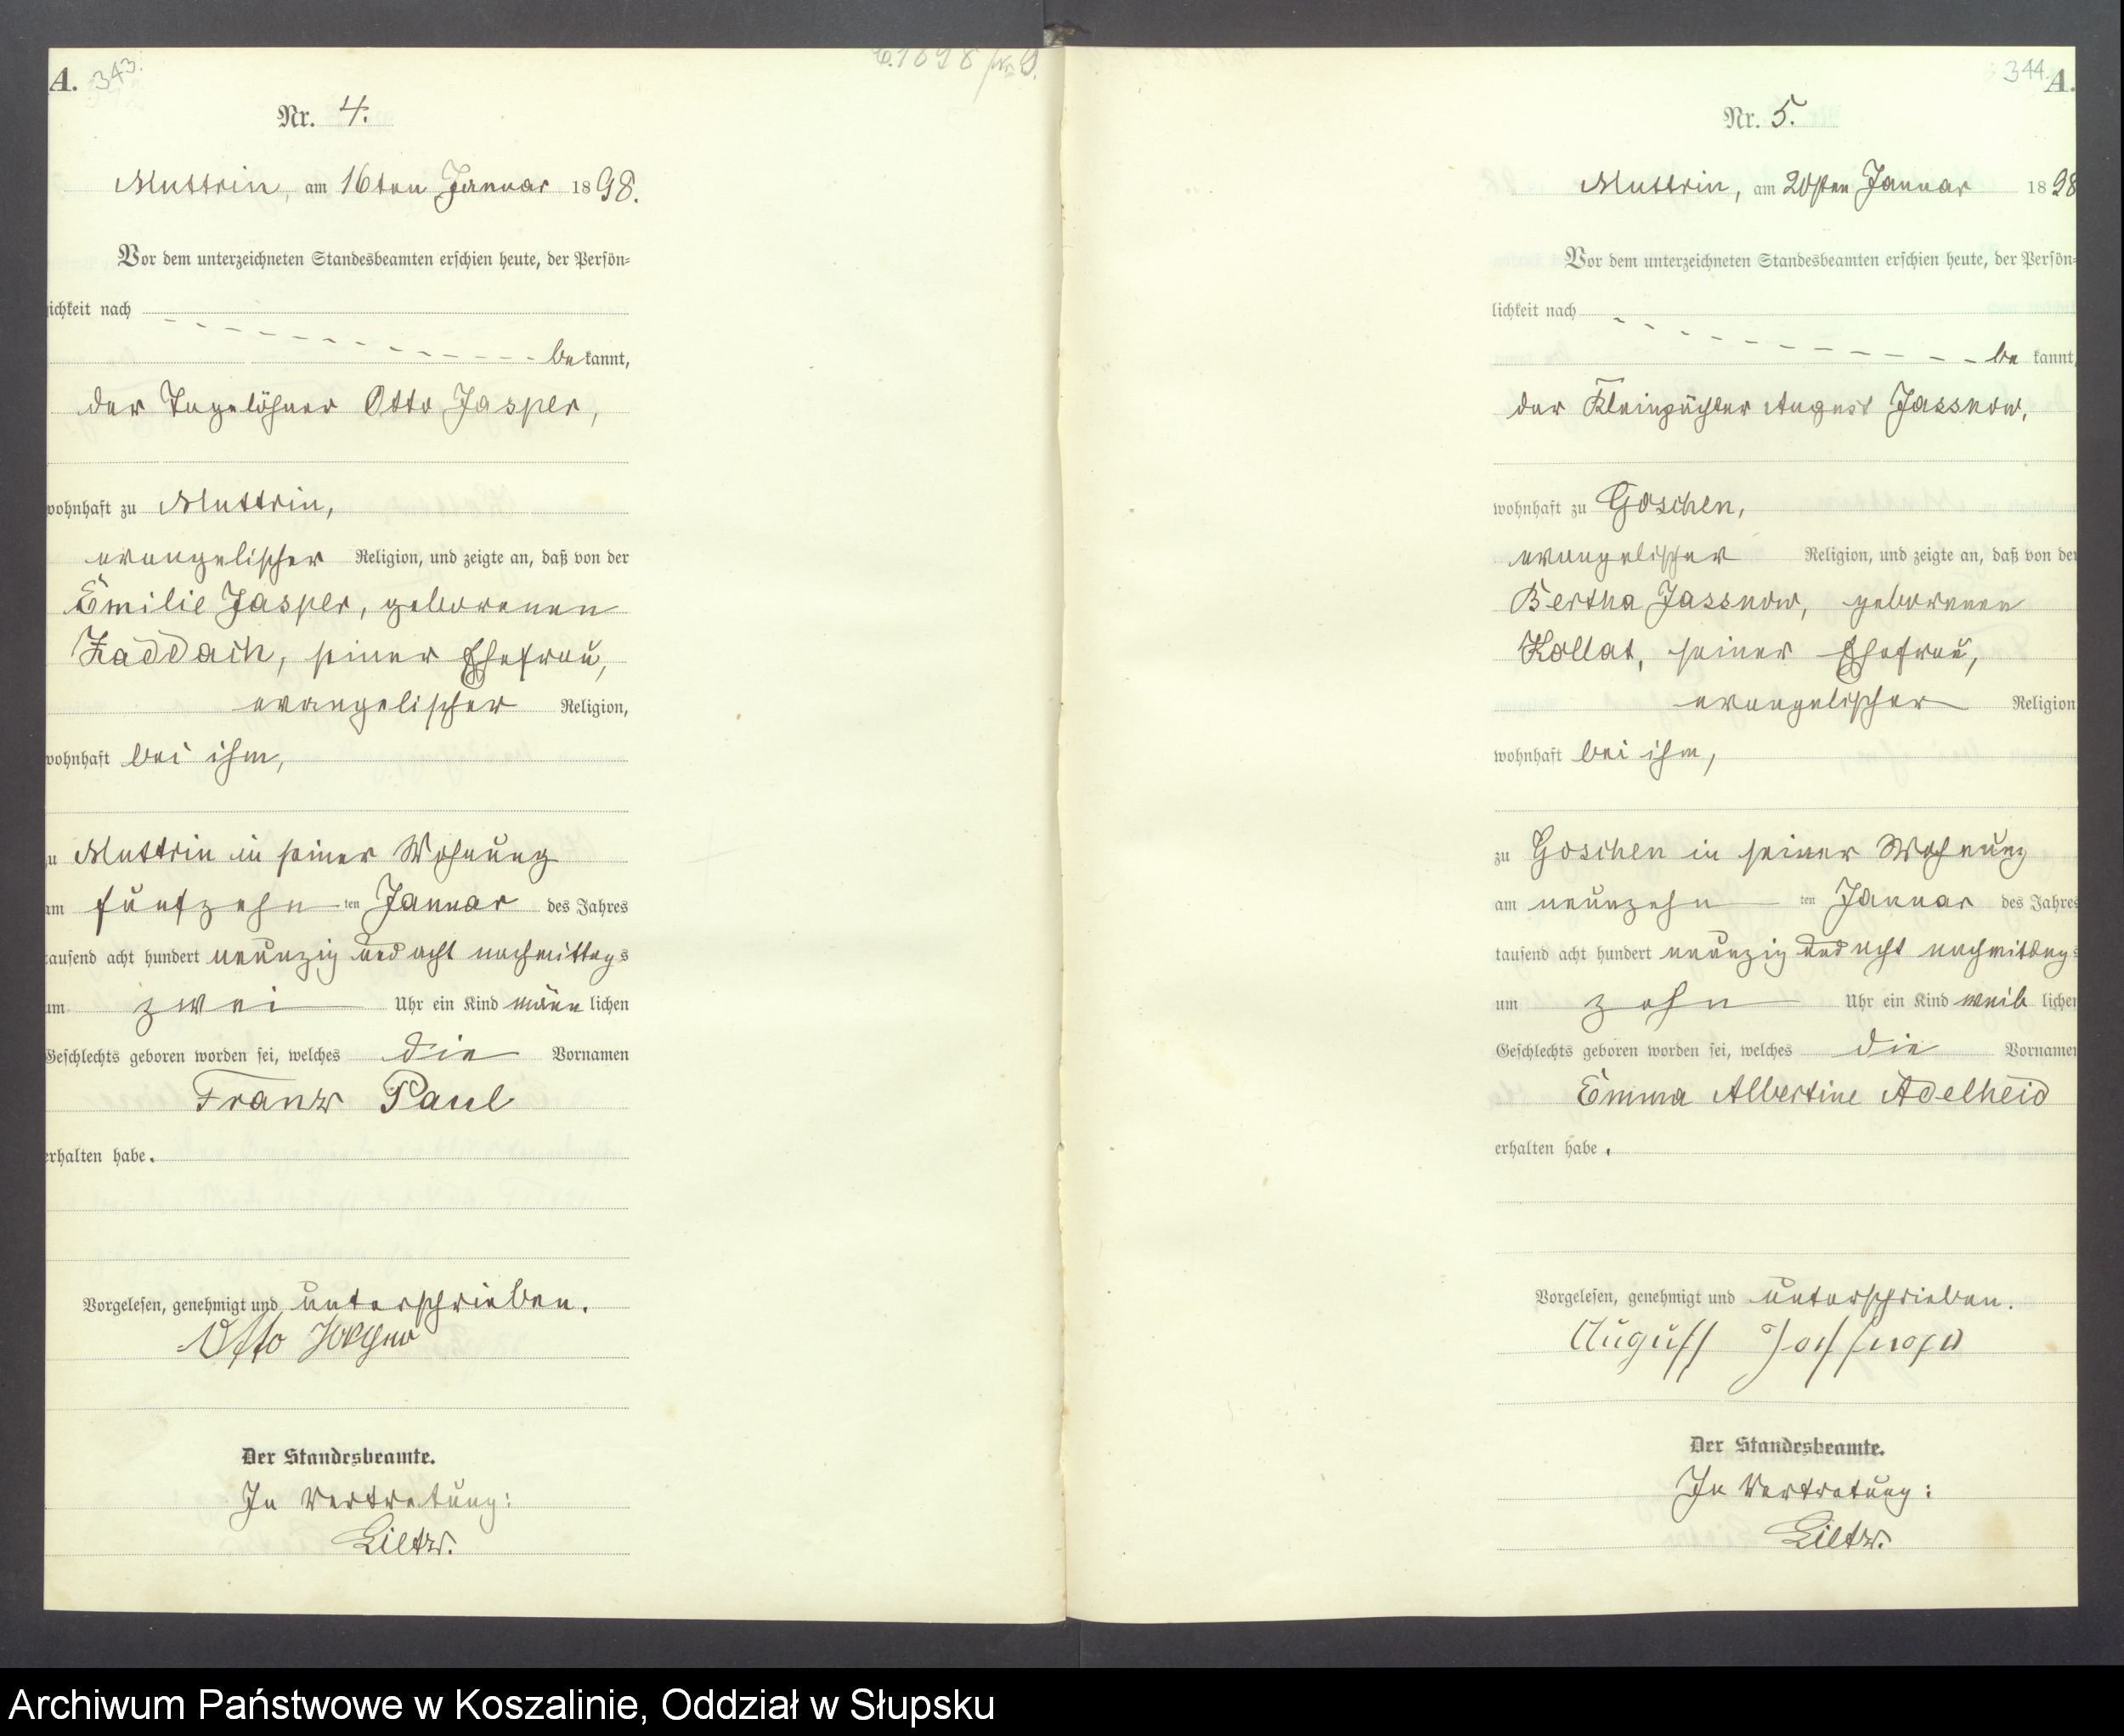 A. 343.
Nr. 4.
Muttrin, am 16ten Januar 1898.
Vor dem unterzeichneten Standesbeamten erschien heute, der Persön-
lichkeit nach
be kannt,
der Tagelöhner Otto Jasper,
wohnhaft zu Muttrin,
evangelischer Religion, und zeigte an, daß von der
Emilie Jasper, geborenen
Zaddach, seiner Ehefrau,
evangelischer Religion,
wohnhaft bei ihm,
zu Muttrin in seiner Wohnung
am fünfzehn ten Januar des Jahres
tausend acht hundert neunzig und acht nachmittags
um zwei Uhr ein Kind männ lichen
Geschlechts geboren worden sei, welches die Vornamen
Franz Paul
erhalten habe.
Vorgelesen, genehmigt und unterschrieben.
Otto Jasper
Der Standesbeamte.
In Vertretung:
Lietz.
344. A.
Nr. 5.
Muttrin, am 20sten Januar 1898
Vor dem unterzeichneten Standesbeamten erschien heute, der Persön-
lichkeit nach
be kannt,
der Kleinpächter August Jassnow,
wohnhaft zu Goschen,
evangelischer Religion, und zeigte an, daß von der
Bertha Jassnow, geborenen
Kollat, seiner Ehefrau,
evangelischer Religion
wohnhaft bei ihm,
zu Goschen in seiner Wohnung
am neunzehn ten Januar des Jahres
tausend acht hundert neunzig und acht nachmittags
um zehn Uhr ein Kind weib lichen
Geschlechts geboren worden sei, welches die Vornamen
Emma Albertine Adelheid
erhalten habe.
Vorgelesen, genehmigt und unterschrieben.
August Jassnow
Der Standesbeamte.
In Vertretung:
Lietz.
Archiwum Państwowe w Koszalinie, Oddział w Słupsku